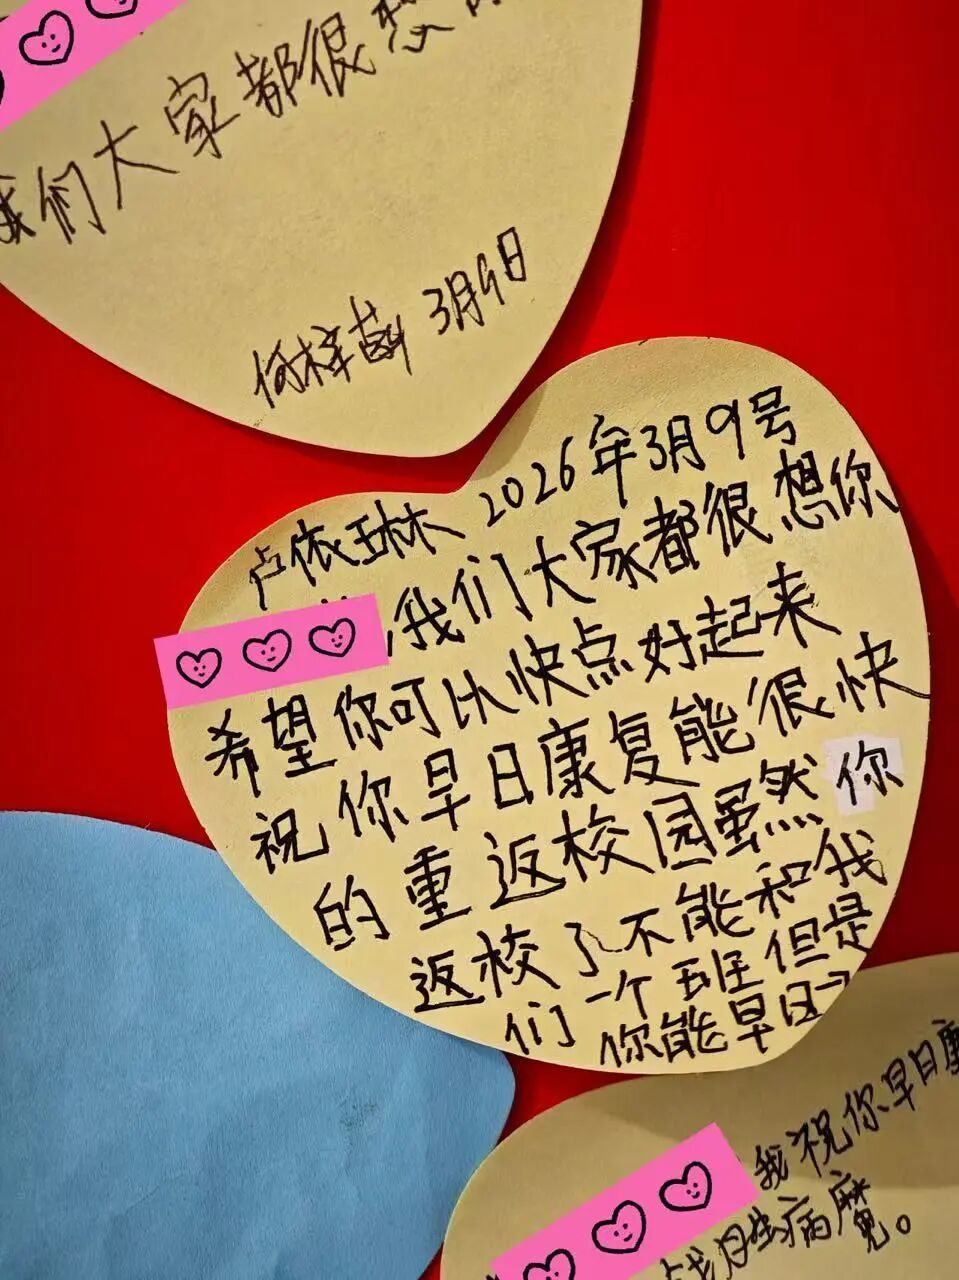 我们大家都很想你
何梓萌 3月9日
卢依琳 2026年3月9号
,我们大家都很想你
希望你可以快点好起来
祝你早日康复能很快
的重返校园虽然你
返校了不能和我
们一个班但是
你能早日→
我祝你早日康
战胜病魔。